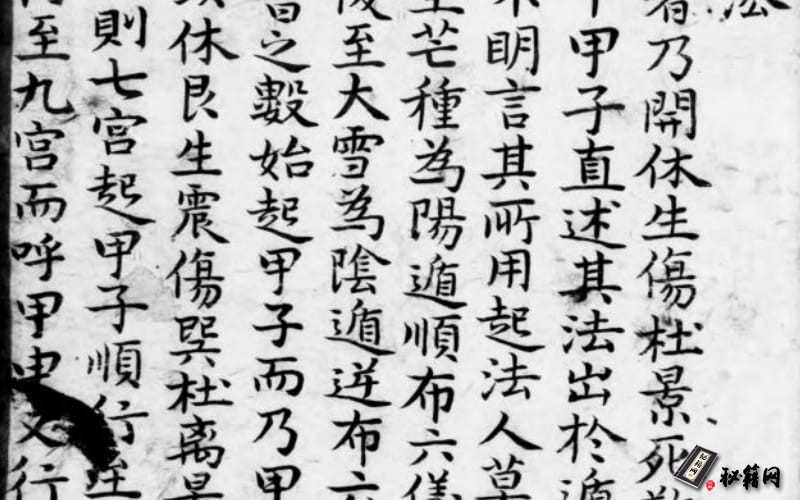 法
者乃開休生傷杜景死
甲子直述其法出於遁
明言其所用起法人莫
至芒種為陽遁順布六儀
至大雪為陰遁逆布六
之數始起甲子而乃甲
休艮生震傷巽杜离景
則七宮起甲子順行至
至九宮而呼甲申又行
秘籍网